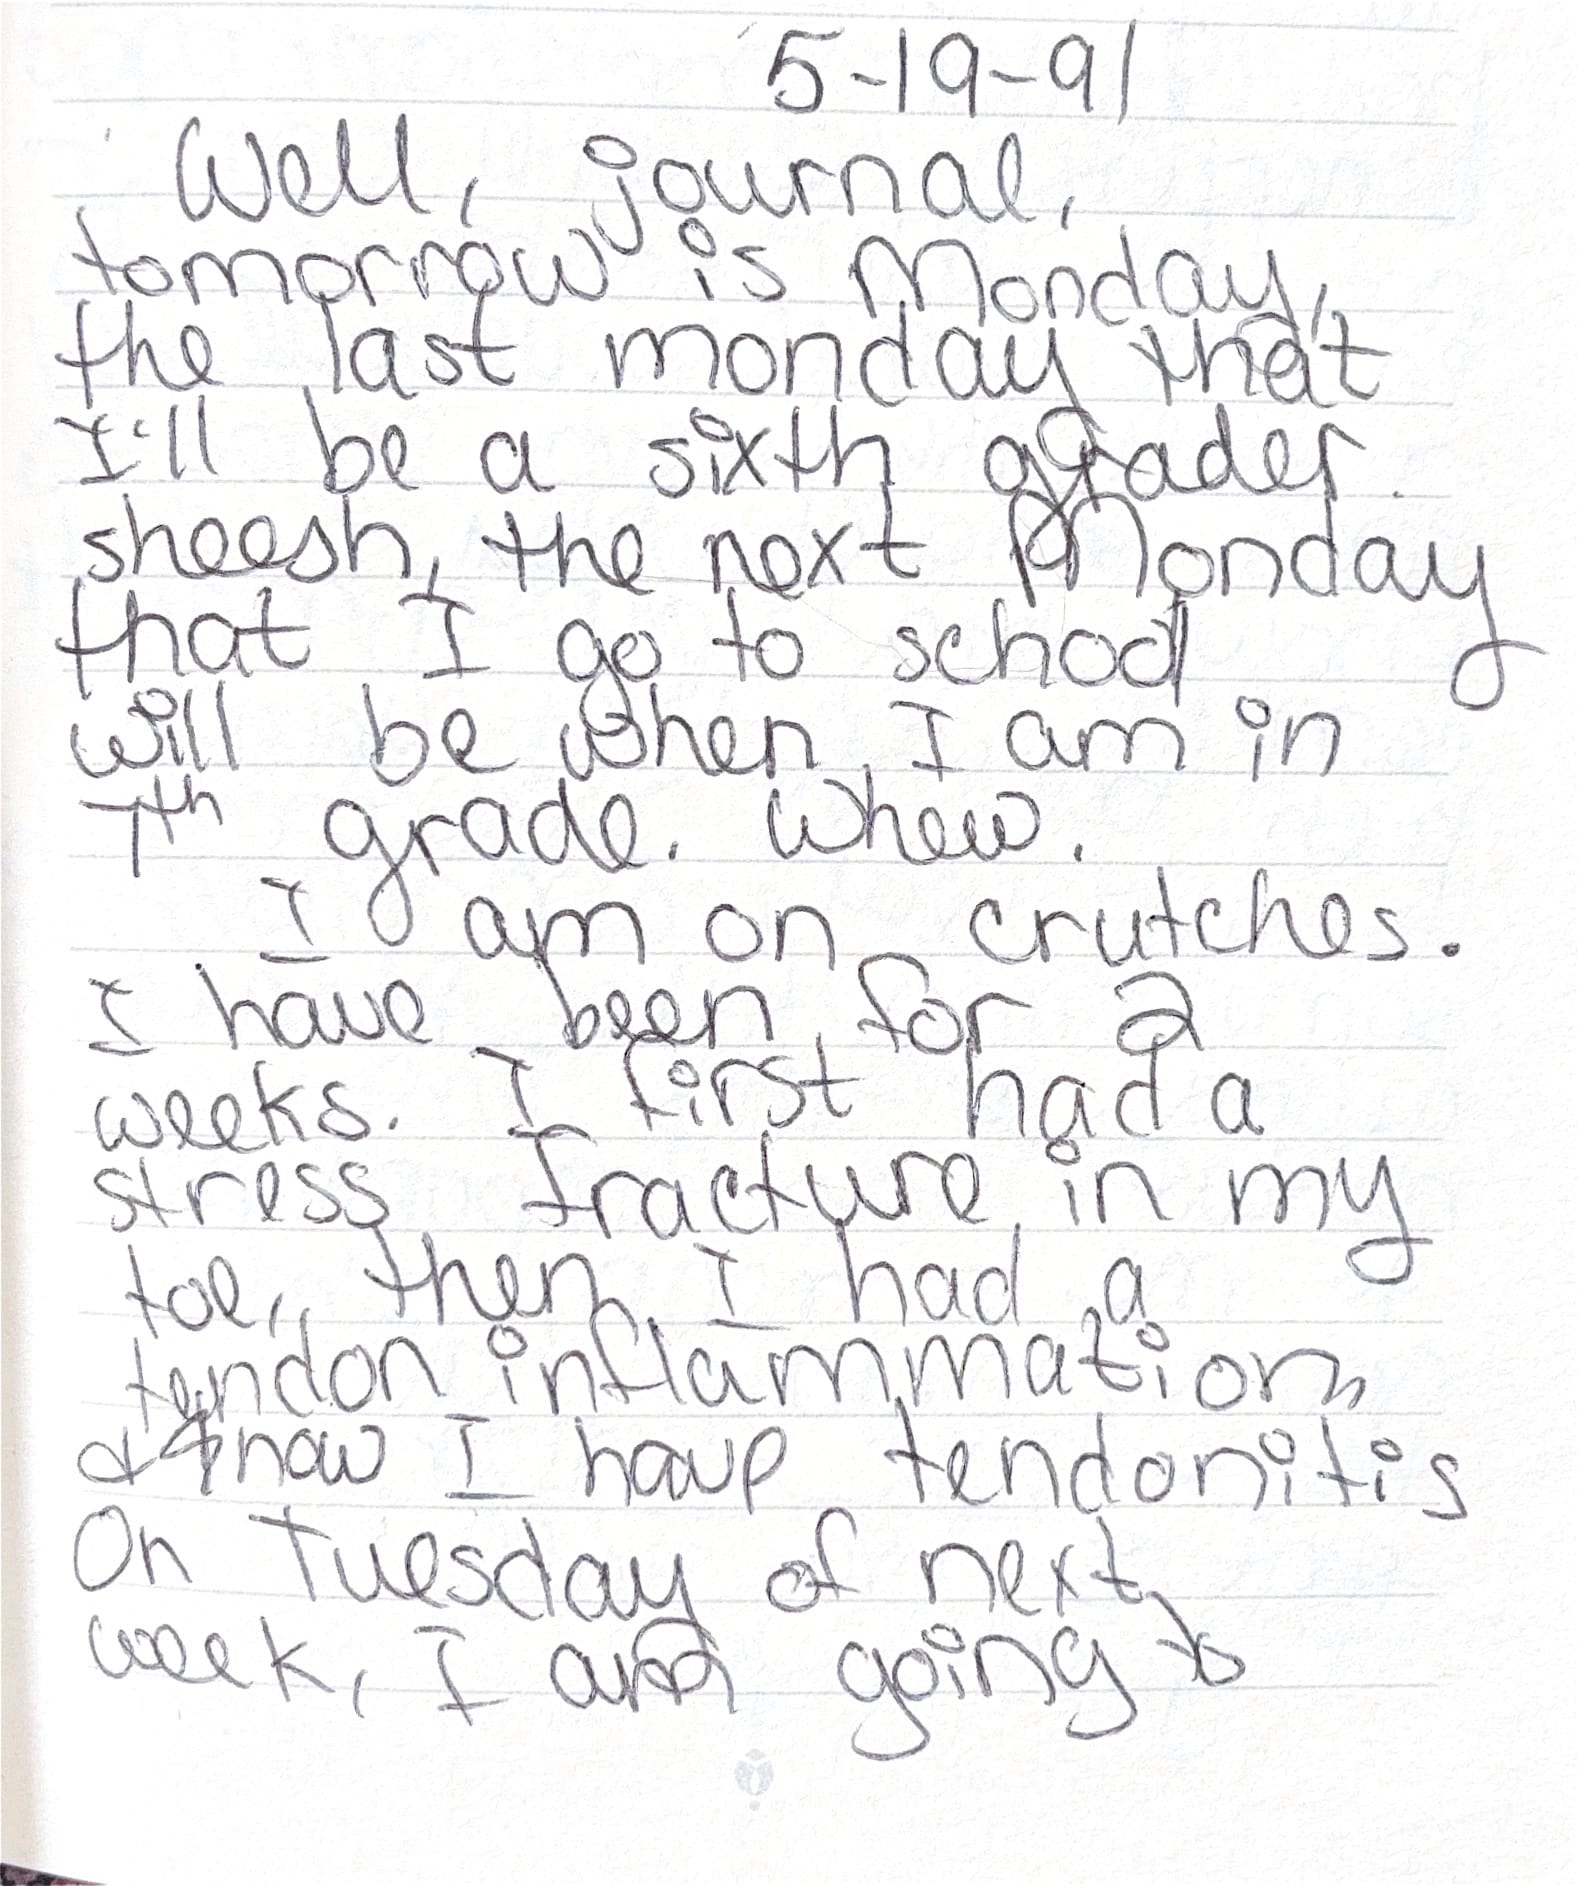 5-19-91
Well, journal,
tomorrow is Monday,
the last monday that
I'll be a sixth grader.
sheesh, the next Monday
that I go to school
will be when I am in
7th grade. Whew.
I am on crutches.
I have been for 2
weeks. I first had a
stress fracture in my
toe, then I had a
tendon inflammation,
& now I have tendonitis
On Tuesday of next
week, I am going to